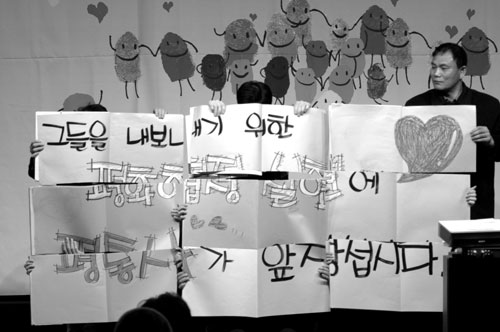 그들을 내보내기 위한
평화협정 실현에
평통사가 앞장섭시다.